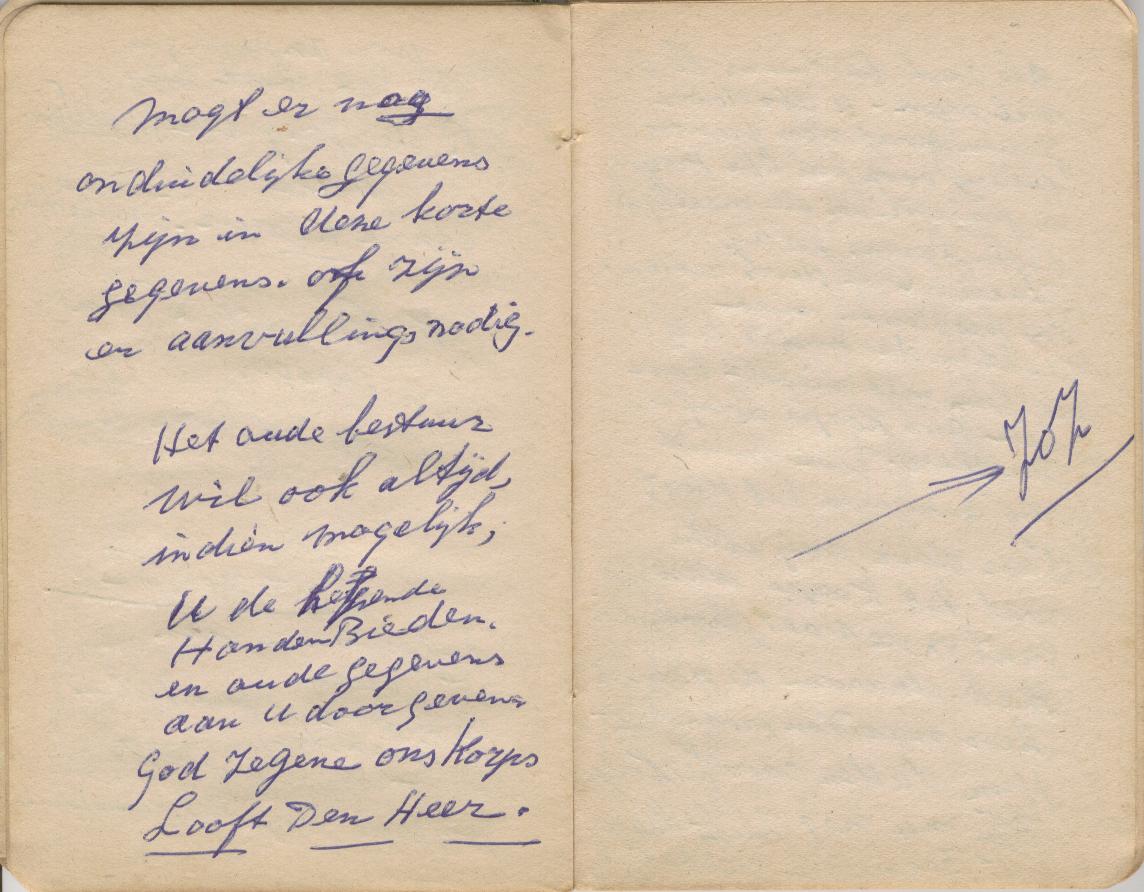 Mogt er nog
onduidelijke gegevens
zijn in deze korte
gegevens. of zijn
er aanvullings nodig.
Het oude bestuur
wil ook altijd,
indien mogelijk,
U de helpende
Handen Bieden.
en oude gegevens
aan U doorgeven.
God Zegene ons Korps
Looft Den Heer.
ZOZ